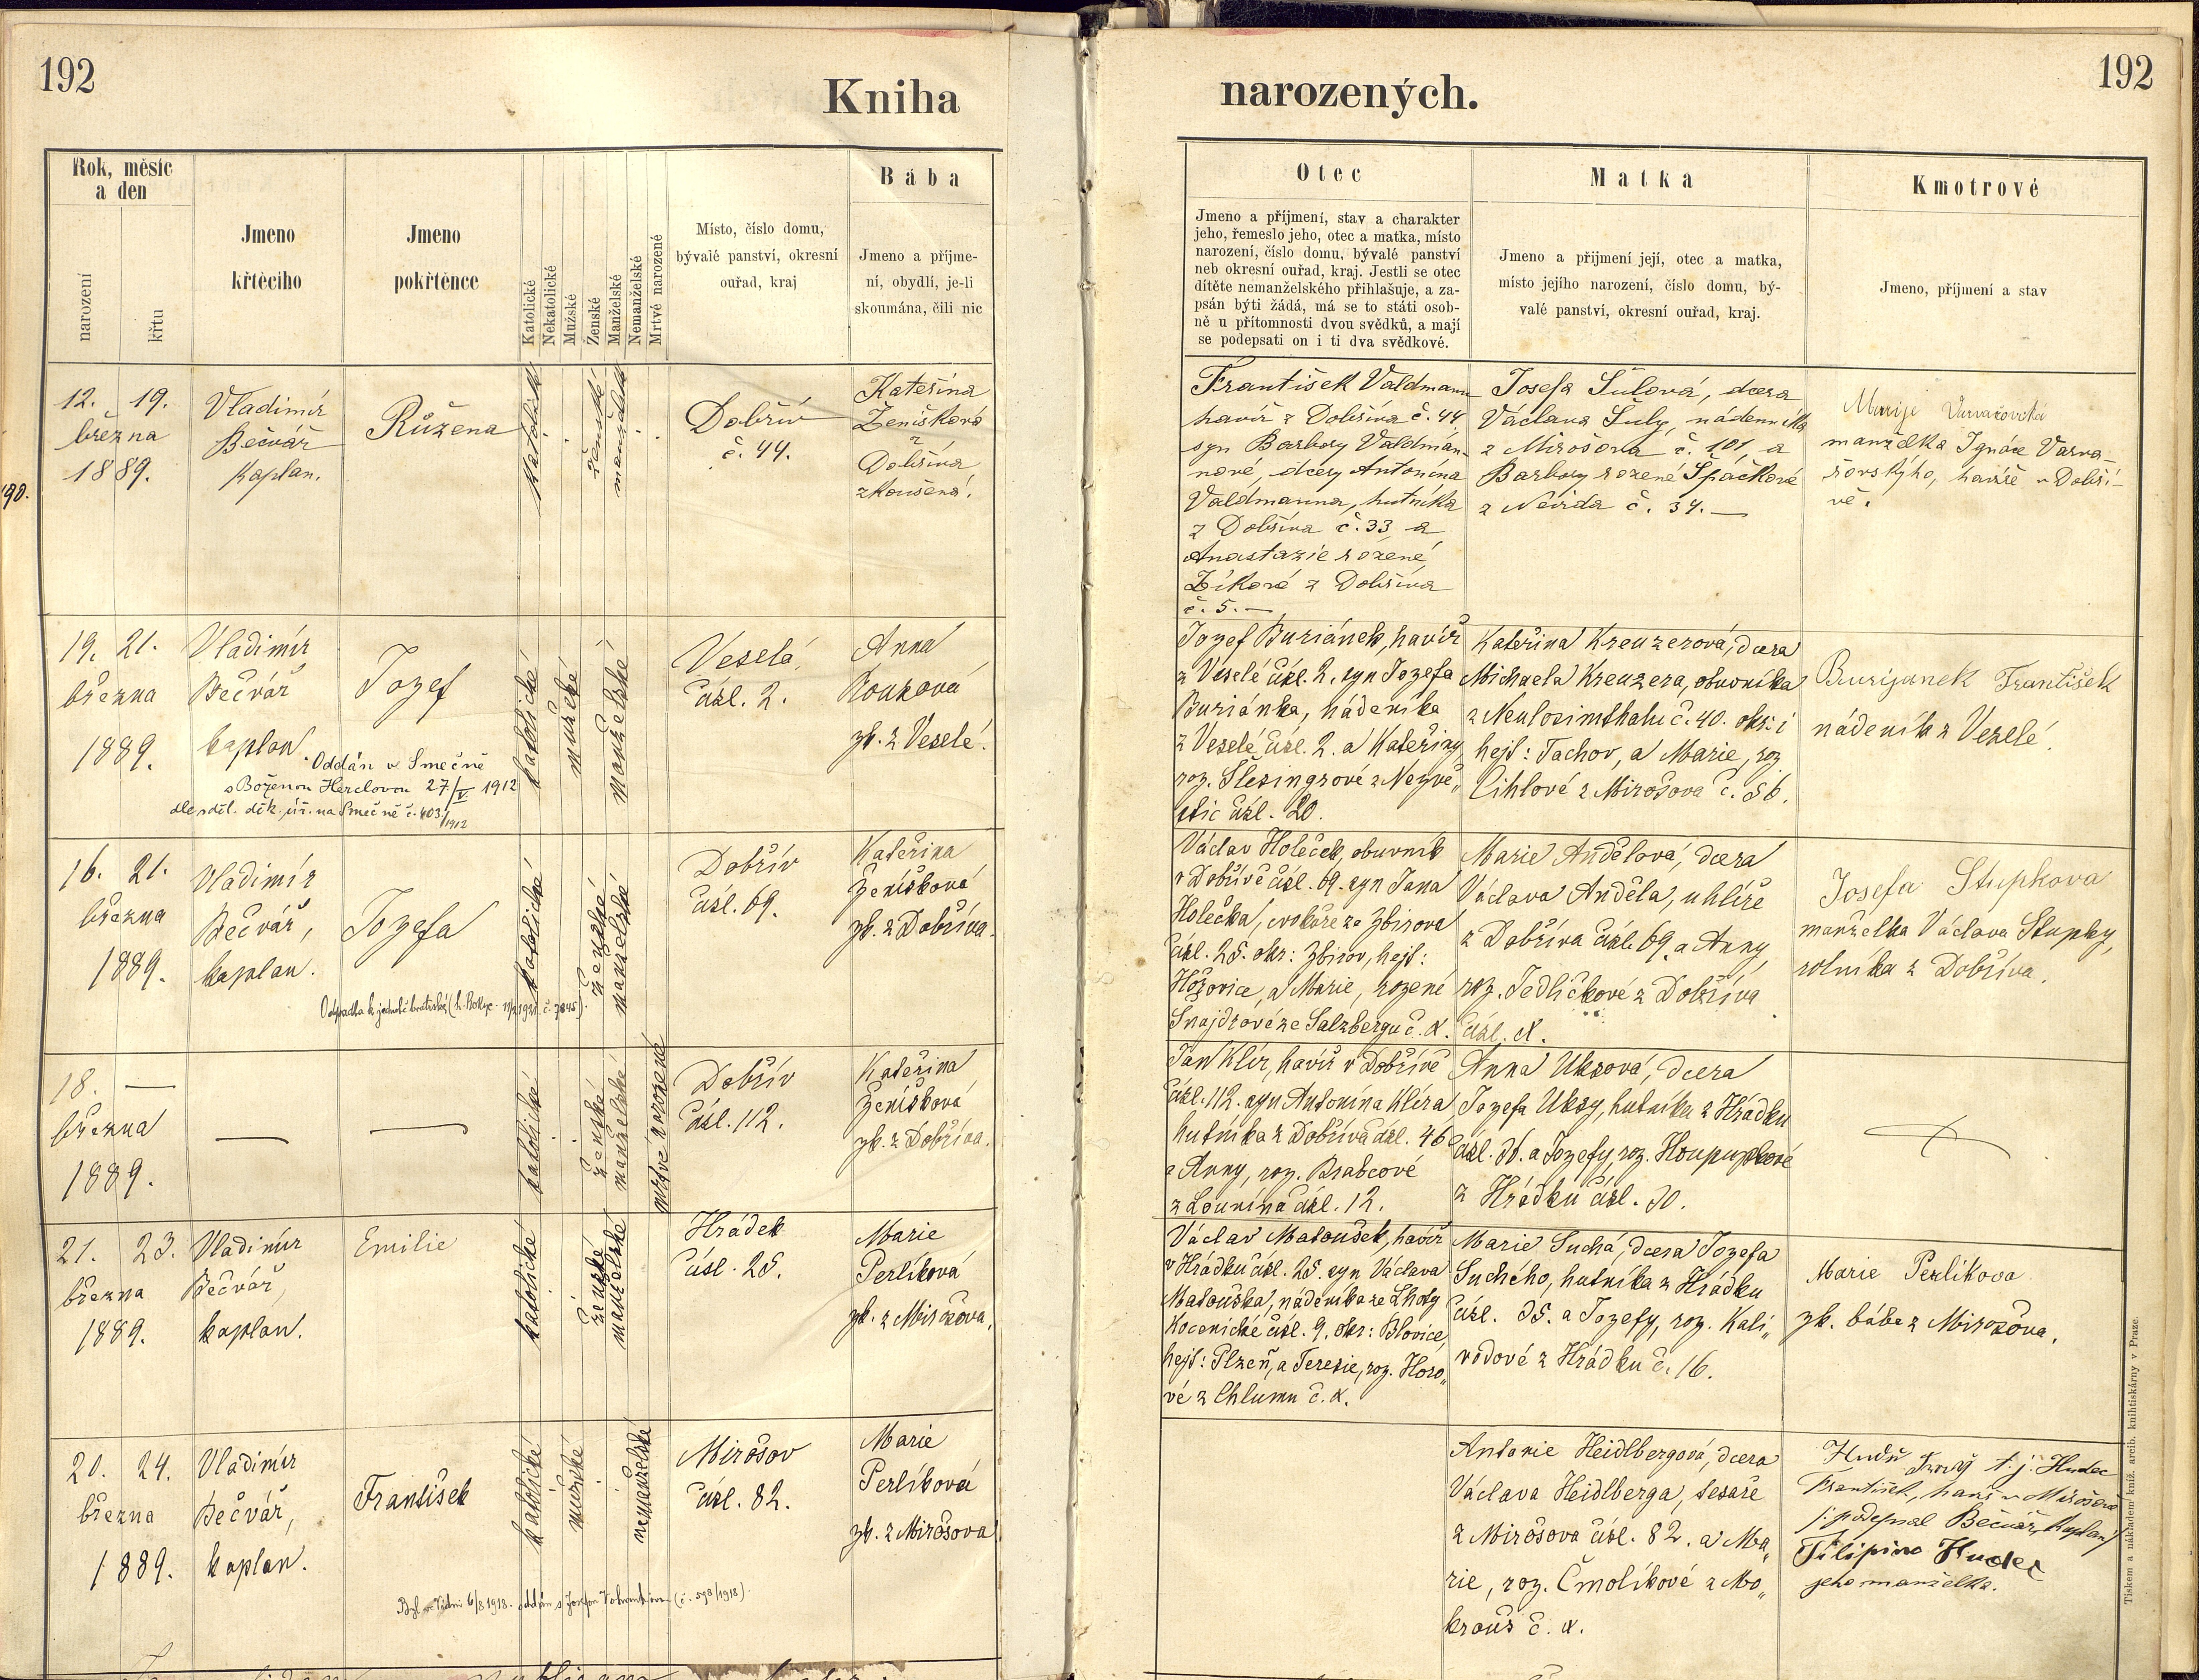 192
Kniha
narozených.
192
Rok, měsíc
a den
narození
křtu
Jmeno
křtěcího
Jmeno
pokřtěnce
Katolické
Nekatolické
Mužské
Ženské
Manželské
Nemanželské
Mrtvé narozené
Místo, číslo domu,
bývalé panství, okresní
ouřad, kraj
Bába
Jmeno a příjme-
ní, obydlí, je-li
skoumána, čili nic
Otec
Jmeno a příjmení, stav a charakter
jeho, řemeslo jeho, otec a matka, místo
narození, číslo domu, bývalé panství
neb okresní ouřad, kraj. Jestli se otec
dítěte nemanželského přihlašuje, a za-
psán býti žádá, má se to státi osob-
ně u přítomnosti dvou svědků, a mají
se podepsati on i ti dva svědkové.
Matka
Jmeno a přijmení její, otec a matka,
místo jejího narození, číslo domu, bý-
valé panství, okresní ouřad, kraj.
Kmotrové
Jmeno, příjmení a stav
190.
12. 19.
března
1889.
Vladimír
Bečvář
Kaplan.
Růžena
katolické
ženské
manželské
Dobřív
č. 44.
Kateřina
Ženíšková
z
Dobříva
zkoušená.
František Valdmann
havíř z Dobříva č. 44,
syn Barbory Valdman-
nové, dcery Antonína
Valdmanna, hutníka
z Dobříva č. 33 a
Anastazie rozené
Zíkové z Dobříva
č. 5. —
Josefa Šulová, dcera
Václava Šuly, nádenníka
z Mirošova č. 101, a
Barbory rozené Špačkové
z Nevida č. 34. —
Marije
manželka Ignáce Varva-
řovskýho, havíře v Dobří-
vě.
19. 21.
března
1889.
Vladimír
Bečvář
kaplan.
Jozef
katolické
mužské
manželské
Veselá,
čísl. 2.
Anna
Kouková
zk. z Veselé.
Oddán v Smečně
s Boženou Herclovou 27/V. 1912
dle sděl. děk. úř. na Smečně č. 403/1912
Jozef Buriánek, havíř
z Veselé čísl. 2. syn Jozefa
Buriánka, nádeníka
z Veselé čísl. 2. a Kateřiny,
roz. Šlesingrové z Nezvě„
stic čísl. 20.
Kateřina Kreuzerová, dcera
Michaela Kreuzera, obuvníka
z Neulosimthalu č. 40. okr: i
hejt: Tachov, a Marie, roz
Cihlové z Mirošova č. 56.
Burijanek František
nádeník z Veselé.
16. 21.
března
1889.
Vladimír
Bečvář,
kaplan.
Jozefa
katolické
ženské
manželské
Dobřív
čísl. 69.
Kateřina
Ženíšková
zk. z Dobříva.
Václav Holeček, obuvník
v Dobřívě čísl. 69. syn Jana
Holečka, cvokaře ze Zbirova
čísl. 25. okr: Zbirov, hejt:
Hořovice, a Marie, rozené
Šnajdrové ze Salzbergu č. x.
Marie Andělová, dcera
Václava Anděla, uhlíře
z Dobříva čísl. 69. a Anny,
roz. Jedličkové z Dobříva
čísl. x.
Josefa Stupkova
manželka Václava Stupky,
rolníka z Dobříva.
18. —
března
1889.
—
—
katolické
ženské
manželské
mrtvé narozené
Dobřív
čísl. 112.
Kateřina
Ženíšková
zk. z Dobříva.
Jan Klír, havíř v Dobřívě
čísl. 112. syn Antonína Klíra
hutníka z Dobříva čísl. 46
a Anny, roz. Brabcové
z Lounína čísl. 12.
Anna Uksová, dcera
Jozefa Uksy, hutníka z Hrádku
z Hrádku čísl. 30.
21. 23.
března
1889.
Vladimír
Bečvář,
kaplan.
Emilie
katolické
ženské
manželské
Hrádek
čísl. 25.
Marie
Perlíková
zk. z Mirošova.
Václav Matoušek, havíř
v Hrádku čísl. 25. syn Václava
Matouška, nádeníka ze Lhoty
Kocenické čísl. 9. okr: Blovice,
hejt: Plzeň, a Terezie, roz. Horo„
vé z Chlumu č. x.
Marie Suchá, dcera Jozefa
Suchého, hutníka z Hrádku
čísl. 35. a Jozefy, roz. Kali„
vodové z Hrádku č. 16.
Marie Perlikova
zk. bába z Mirošova.
20. 24.
března
1889.
Vladimír
Bečvář,
kaplan.
František
katolické
mužské
nemanželské
Mirošov
čísl. 82.
Marie
Perlíková
zk. z Mirošova
(č. 593/1918).
Antonie Heidlbergová, dcera
Václava Heidlberga, tesaře
z Mirošova čísl. 82. a Ma„
rie, roz. Čmolíkové z Mo„
krouš č. x.
t. j. Hudec
František, havíř v Mirošově
/: podepsal Bečvář, kaplan/
Filipina Hudec
jeho manželka.
Tiskem a nákladem kníž. arcib. knihtiskárny v Praze.